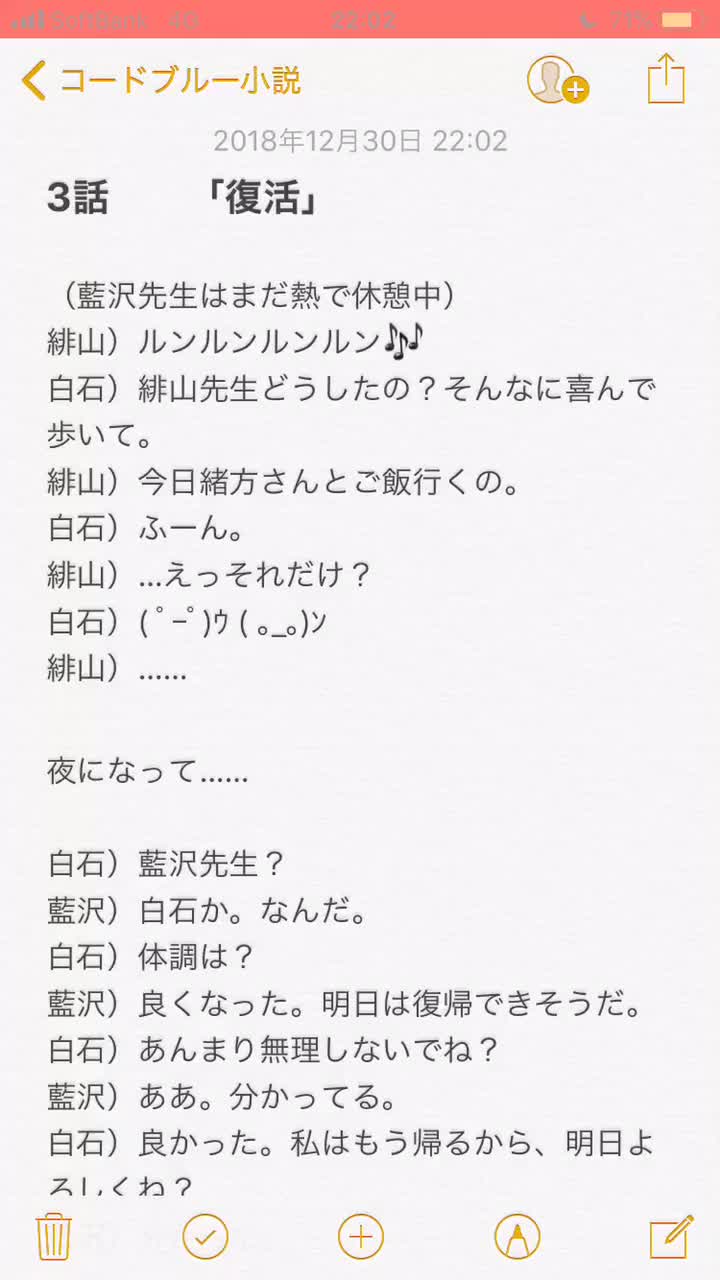 SoftBank 4G 22:02 71%
コードブルー小説
2018年12月30日 22:02
3話 「復活」
（藍沢先生はまだ熱で休憩中）
緋山）ルンルンルンルン🎶
白石）緋山先生どうしたの？そんなに喜んで
歩いて。
緋山）今日緒方さんとご飯行くの。
白石）ふーん。
緋山）...えっそれだけ？
白石）( ﾟｰﾟ)ｳ ( ｡_｡)ﾝ
緋山）......
夜になって......
白石）藍沢先生？
藍沢）白石か。なんだ。
白石）体調は？
藍沢）良くなった。明日は復帰できそうだ。
白石）あんまり無理しないでね？
藍沢）ああ。分かってる。
白石）良かった。私はもう帰るから、明日よ
ろしくね？